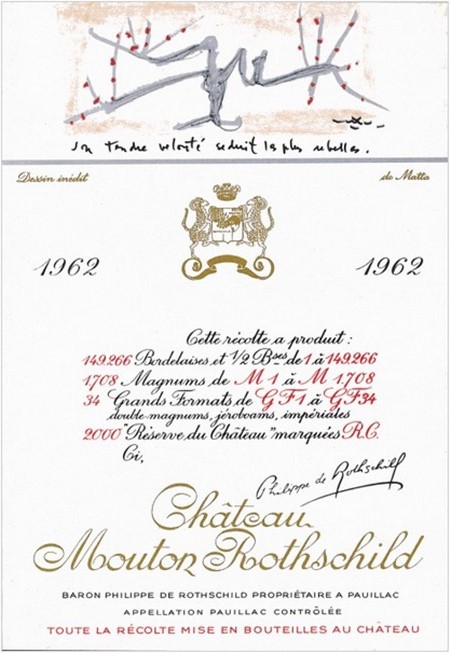 Son tendre velouté séduit les plus rebelles.
Dessin inédit
de Matta
1962
1962
Cette récolte a produit :
149.266 Bordelaises et 1/2 Bses de 1 à 149.266
1708 Magnums de M 1 à M 1.708
34 Grands Formats de GF1 à GF34
double-magnums, jéroboams, impériales
2000 "Réserve du Château" marquées R.C.
Ci,
Philippe de Rothschild
Château
Mouton Rothschild
BARON PHILIPPE DE ROTHSCHILD PROPRIÉTAIRE A PAUILLAC
APPELLATION PAUILLAC CONTRÔLÉE
TOUTE LA RÉCOLTE MISE EN BOUTEILLES AU CHÂTEAU